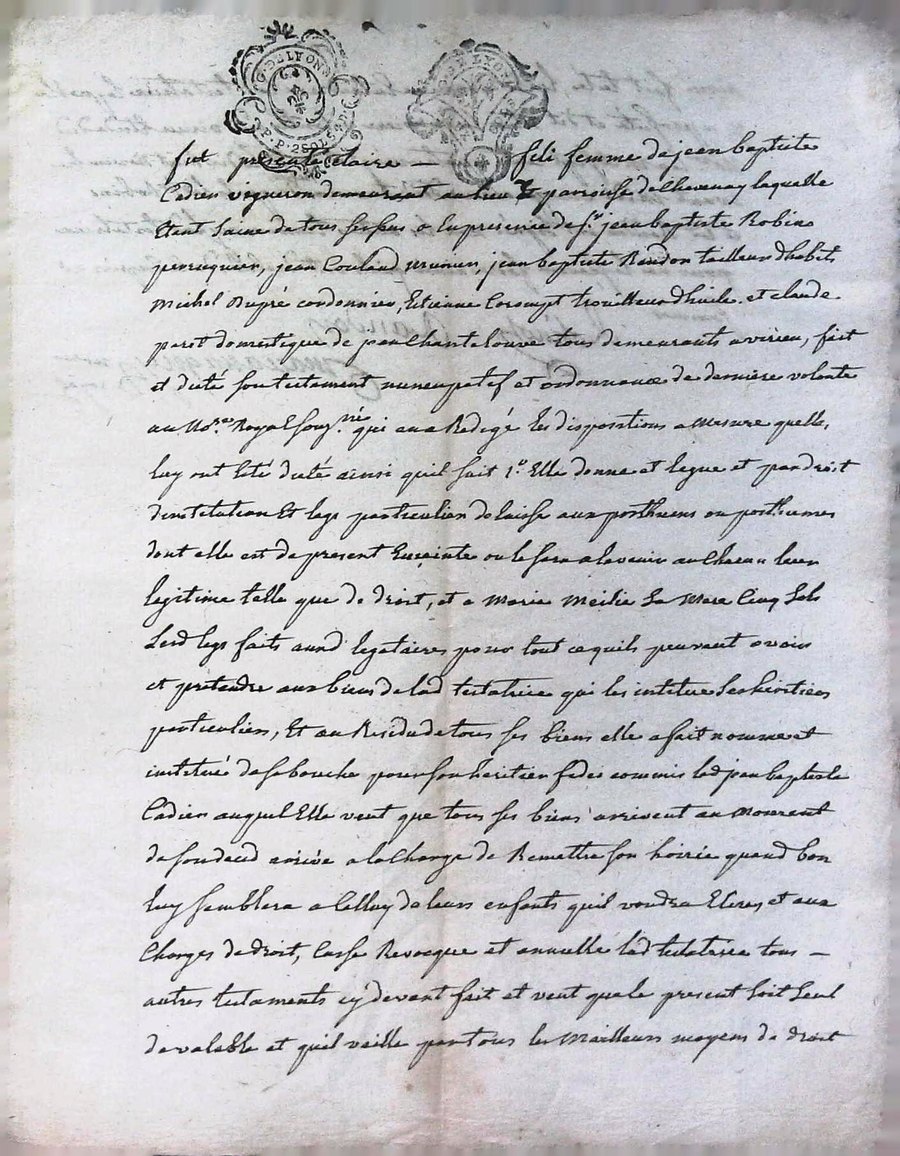 G. DE LYON
P. P. 2 SOLS 8 D.
DE LYON
fut presente claire — feli femme de jean baptiste
Cadier vigneron demeurant au lieu & parroisse de Chavenay laquelle
Etant saine de tous ses sens a la presence de sr. jean baptiste Robin
perruquier, jean Coulaud munier, jean baptiste Randon tailleur dhabits
Michel Dupré cordonnier, Etienne Corompt trouilleur dhuile et claude
paret domestique de Chantelouve tous demeurants a virieu, fait
et dicté son testament nuncupatif et ordonnance de derniere volonte
au No.re Royal souz.né qui au a Redigé les dispositions a mesure quelles
luy ont été dicté ainsi quil suit 1.o Elle donne et legue et par droit
dinstitution Et legs particulier delaisse aux posthumes ou posthumes
dont elle est de present Enceinte ou le sera a lavenir au Chacun leur
legitime telle que de droit, et a Marie Meilie sa Mere Cinq sols
Lesd legs faits auxd legataires pour tout ce quils peuvent avoir
et pretendre aux biens de lad testatrice qui les institue ses heritiers
particuliers, Et au Residu de tous ses biens elle a fait nommé et
institué de sa bouche pour son heritier fidei commis led jean baptiste
Cadier auquel Elle veut que tous ses biens arrivent au moment
de son deced arrivé a la Charge de Remettre son hoirie quand bon
luy semblera a Celluy de leurs enfants quil voudra Elire, et aux
Charges de droit, Casse Revocque et annulle lad testatrice tous —
autres testaments cy devant fait et veut que le present soit seul
de valable et quil vaille par tous les Meilleurs moyens de droit